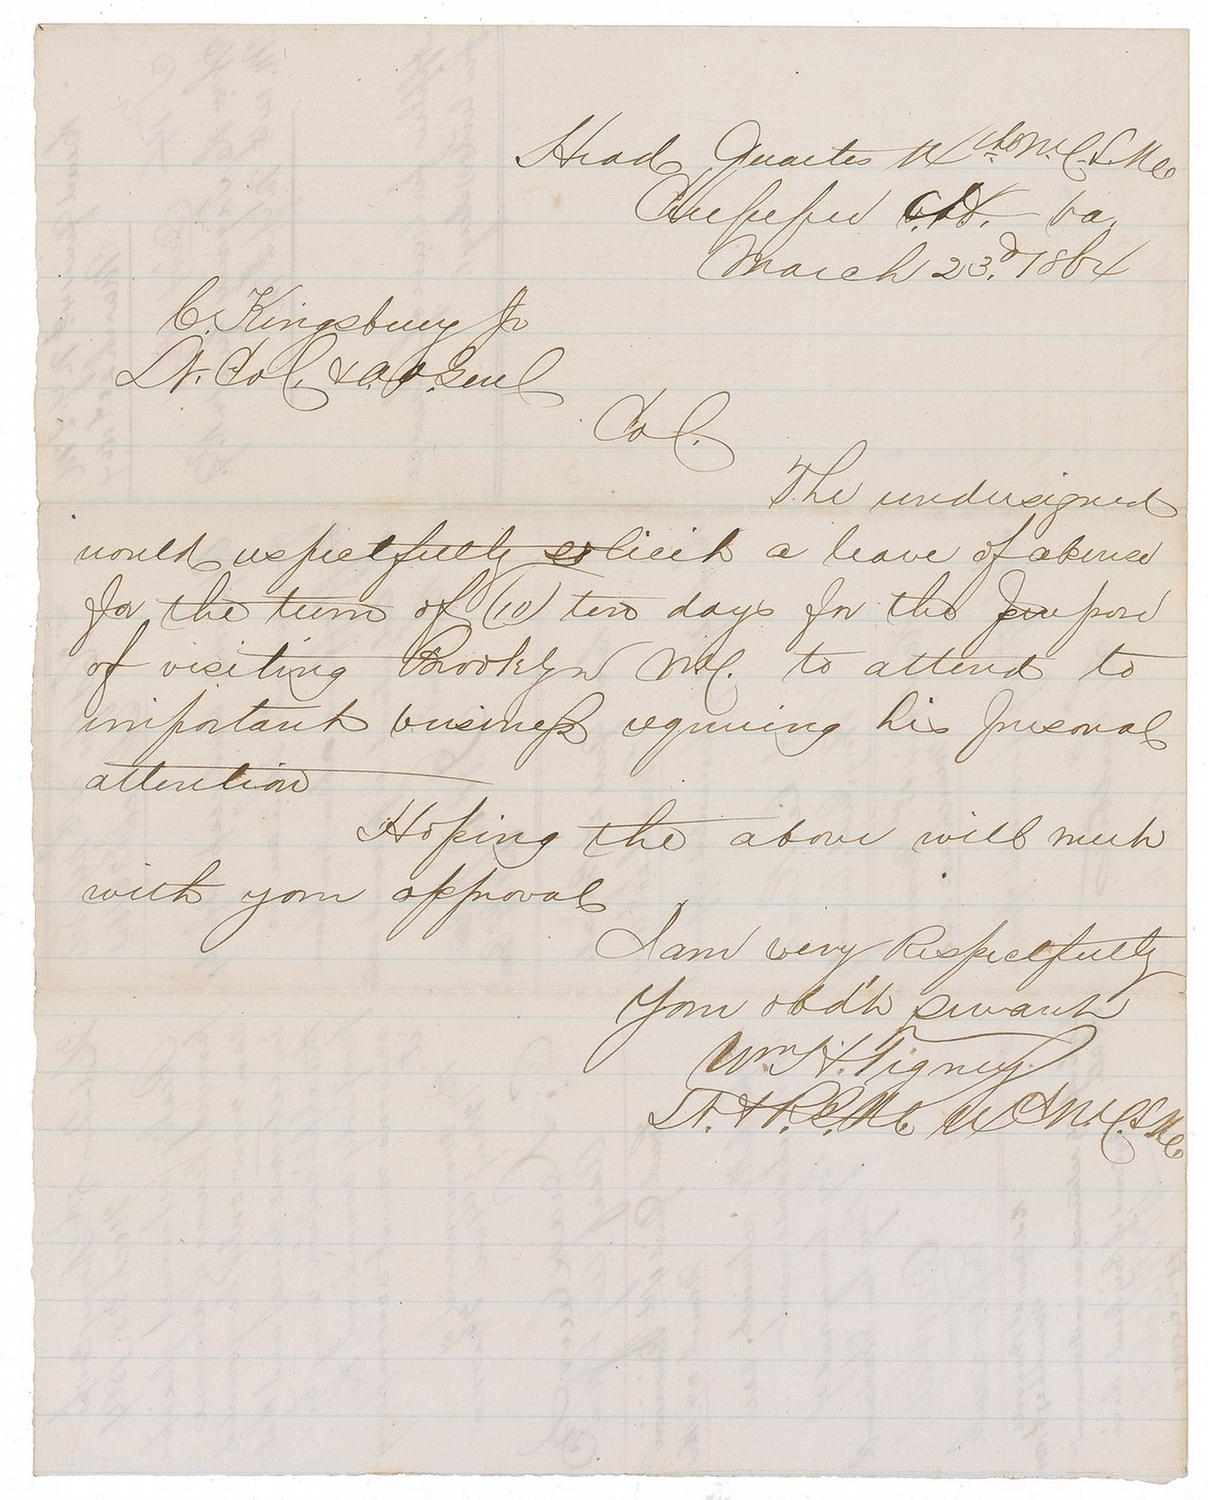 Head Quarters 14th N.Y.S.M.
Culpeper C.H. Va.
March 23d, 1864
C. Kingsbury Jr
Lt. Col. & A.A. Genl
Col.
The undersigned
would respectfully solicit a leave of absence
for the term of (10) ten days for the purpose
of visiting Brooklyn N.Y. to attend to
important business requiring his personal
attention
Hoping the above will meet
with your approval
I am very Respectfully
Your obd't servant
Wm H. Tigney
Lt. & R.Q.M. 14th N.Y.S.M.